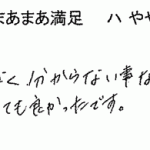 まあまあ満足　ハ やや
く分からない事な
ても良かったです。